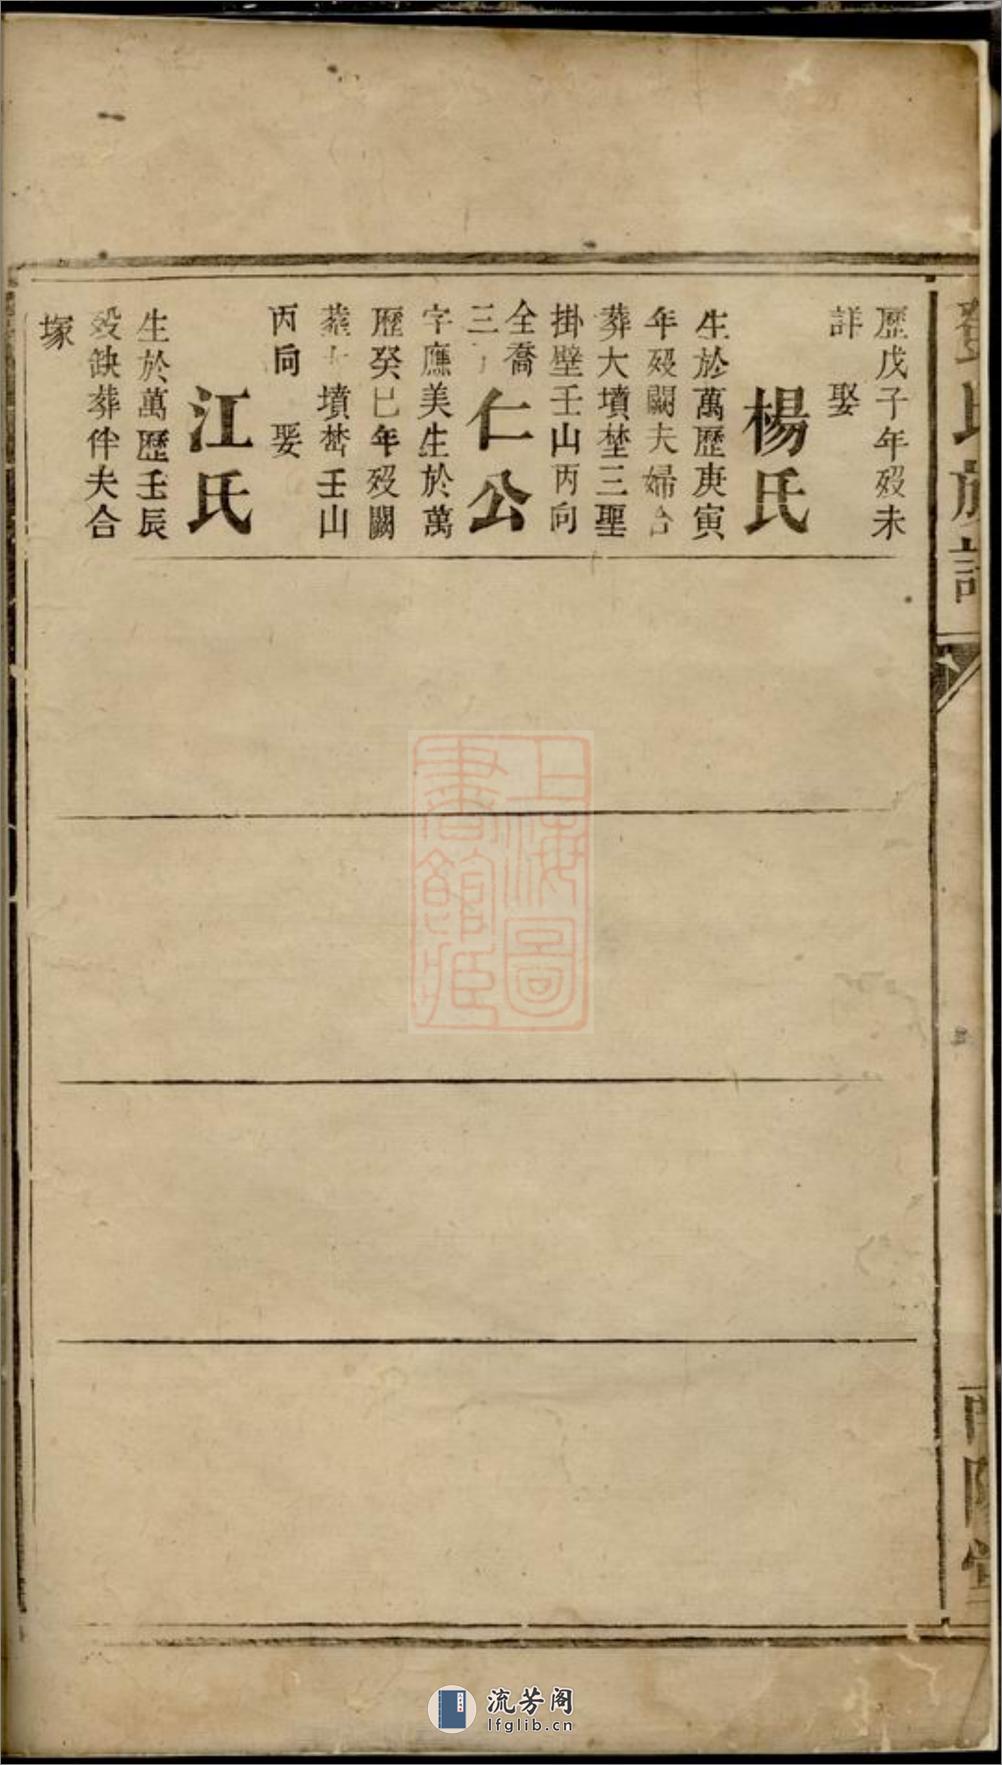 歷戊子年歿未
詳 娶
楊氏
生於萬歷庚寅
年歿闕夫婦合
葬大墳埜三聖
掛壁壬山丙向
全喬
三
仁公
字應美生於萬
歷癸巳年歿闕
葬大墳埜壬山
丙向 娶
江氏
生於萬歷壬辰
歿缺葬伴夫合
塚
氏族譜
南陽堂
上海圖
書館藏
流芳阁
lfglib.cn